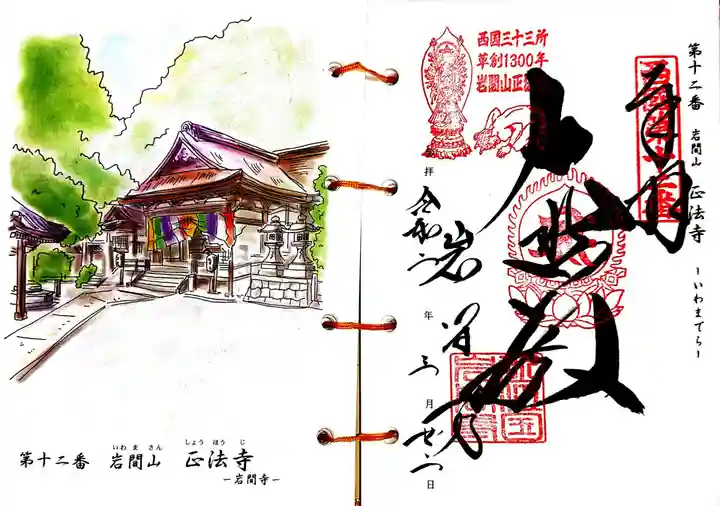 第十二番 岩間山 正法寺
いわ ま さん しょう ほう じ
ー岩間寺ー
第十二番 岩間山 正法寺 ーいわまでらー
奉拝
大悲殿
岩間寺
西国三十三所
草創1300年
岩間山正法
令和二年三月廿一日